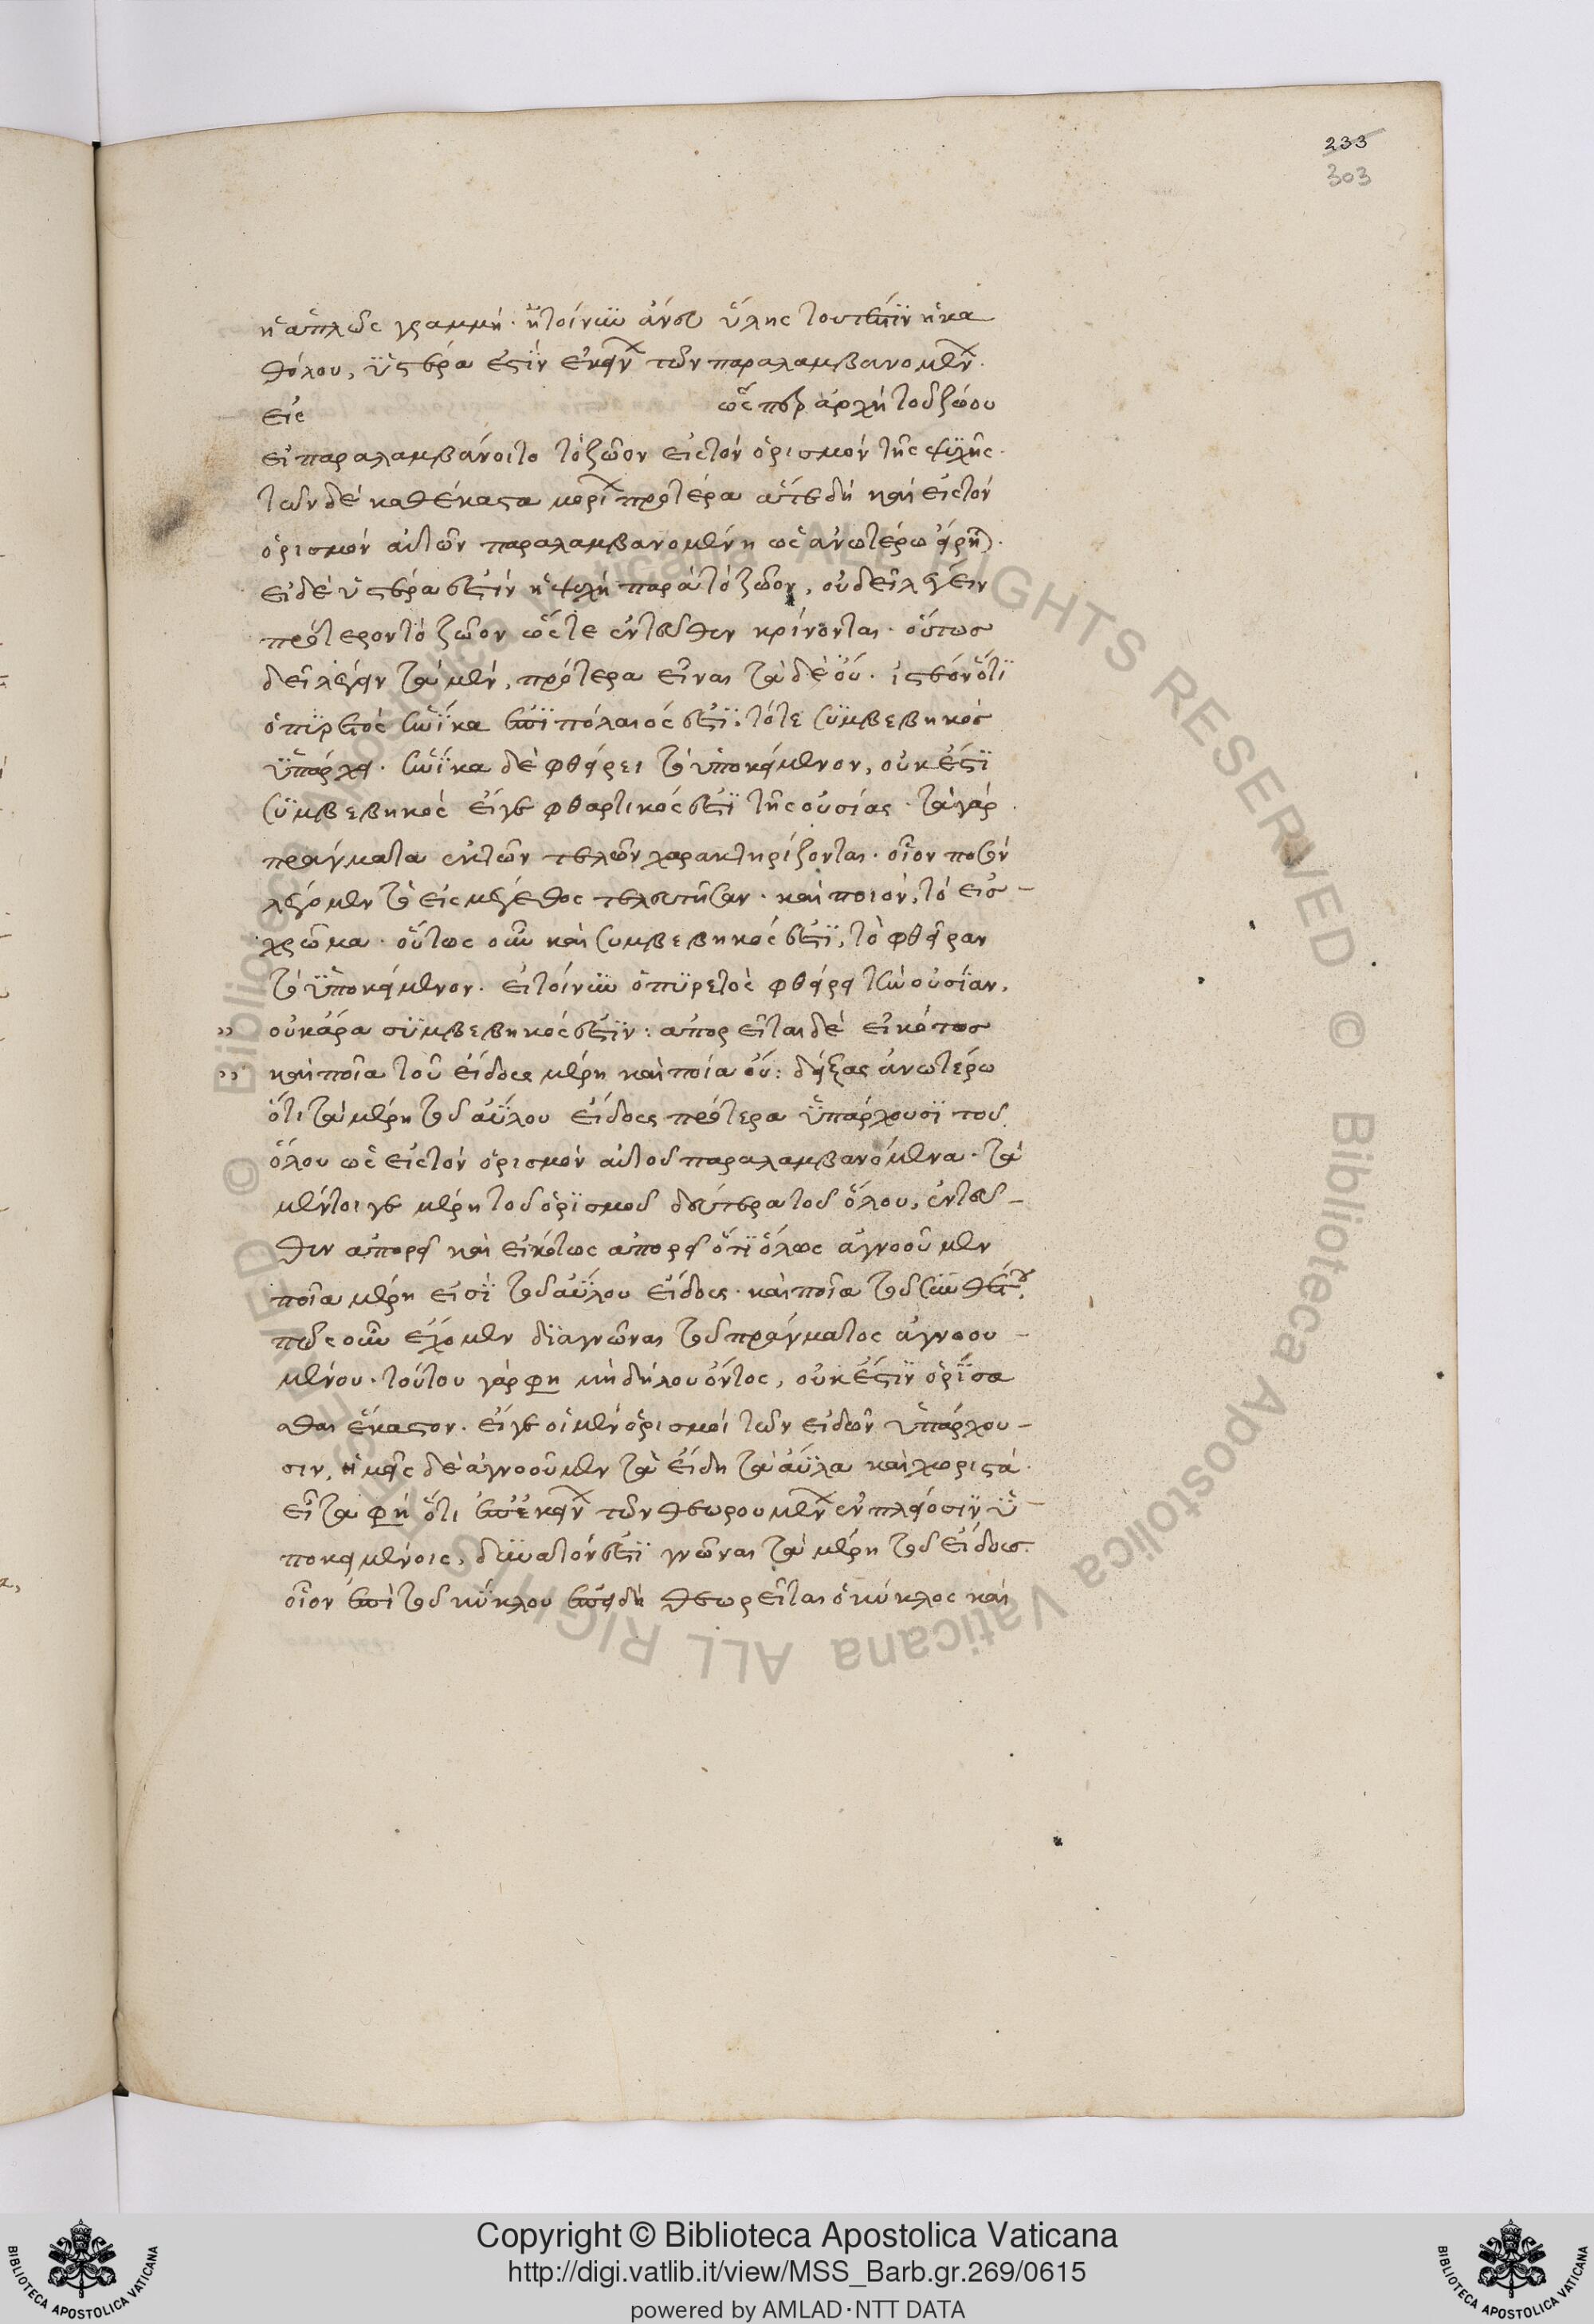 233
303
ἡ ἁπλῶς γραμμή. ἡ τοίνυν ἄνευ ὕλης τουτέστιν ἡ κα
θόλου, ὑστέρα ἐστὶν ἐκείνων τῶν παραλαμβανομένων.
εἰς ὥσπερ ἀρχὴ τοῦ ζώου
εἰ παραλαμβάνοιτο τὸ ζῶον εἰς τὸν ὁρισμὸν τῆς ψυχῆς.
τῶν δὲ καθέκαστα μορίων προτέρα ἅτε δὴ καὶ εἰς τὸν
ὁρισμὸν αὐτῶν παραλαμβανομένη ὡς ἀνωτέρω εἴρηται.
εἰ δὲ ὑστέρα ἐστὶν ἡ ψυχὴ παρὰ τὸ ζῶον, οὐ δεῖ λέγειν
πρότερον τὸ ζῶον ὥστε ἐντεῦθεν κρίνονται. οὕτως
δεῖ λέγειν τὰ μὲν, πρότερα εἶναι τὰ δὲ οὔ. ἰστέον ὅτι
ὁ πυρετὸς ἡνίκα ἐπιπόλαιός ἐστι, τότε συμβεβηκός
ὑπάρχει. ἡνίκα δὲ φθείρει τὸ ὑποκείμενον, οὐκ ἔστι
συμβεβηκὸς εἴγε φθαρτικός ἐστι τῆς οὐσίας. τὰ γὰρ
πράγματα ἐκ τῶν τελῶν χαρακτηρίζονται. οἷον ποσὸν
λέγομεν τὸ εἰς μέγεθος τελευτῆσαν. καὶ ποιόν, τὸ εἰς
χρῶμα. οὕτως οὖν καὶ συμβεβηκός ἐστι, τὸ φθεῖραν
τὸ ὑποκείμενον. εἰ τοίνυν ὁ πυρετὸς φθείρει τὴν οὐσίαν,
» οὐκ ἄρα συμβεβηκός ἐστιν: ἀπορεῖται δὲ εἰκότως
» καὶ ποῖα τοῦ εἴδους μέρη καὶ ποία οὔ: δείξας ἀνωτέρω
ὅτι τὰ μέρη τοῦ ἀΰλου εἴδους πρότερα ὑπάρχουσι τοῦ
ὅλου ὡς εἰς τὸν ὁρισμὸν αὐτοῦ παραλαμβανόμενα. τὰ
μέντοι γε μέρη τοῦ ὁρισμοῦ δεύτερα τοῦ ὅλου, ἐντεῦ-
θεν ἀπορεῖ καὶ εἰκότως ἀπορεῖ ὅτι ὅλως ἀγνοοῦμεν
ποῖα μέρη εἰσὶ τοῦ ἀΰλου εἴδους. καὶ ποῖα τοῦ συνθέτου.
πῶς οὖν ἔχομεν διαγνῶναι τοῦ πράγματος ἀγνοου-
μένου. τούτου γάρ φησι μὴ δήλου ὄντος, οὐκ ἔστιν ὁρίσα
σθαι ἕκαστον. εἴγε οἱ μὲν ὁρισμοί τῶν εἰδῶν ὑπάρχου-
σιν, ἡμεῖς δὲ ἀγνοοῦμεν τὰ εἴδη τὰ ἄϋλα καὶ χωριστά.
εἶτα φησὶ ὅτι ἐπ' ἐκείνων τῶν θεωρουμένων ἐν πλείοσιν ὑ-
ποκειμένοις, δυνατόν ἐστι γνῶναι τὰ μέρη τοῦ εἴδους.
οἷον ἐπὶ τοῦ κύκλου ἐπειδὴ θεωρεῖται ὁ κύκλος καὶ
Copyright © Biblioteca Apostolica Vaticana
http://digi.vatlib.it/view/MSS_Barb.gr.269/0615
powered by AMLAD·NTT DATA
BIBLIOTECA APOSTOLICA VATICANA
BIBLIOTECA APOSTOLICA VATICANA